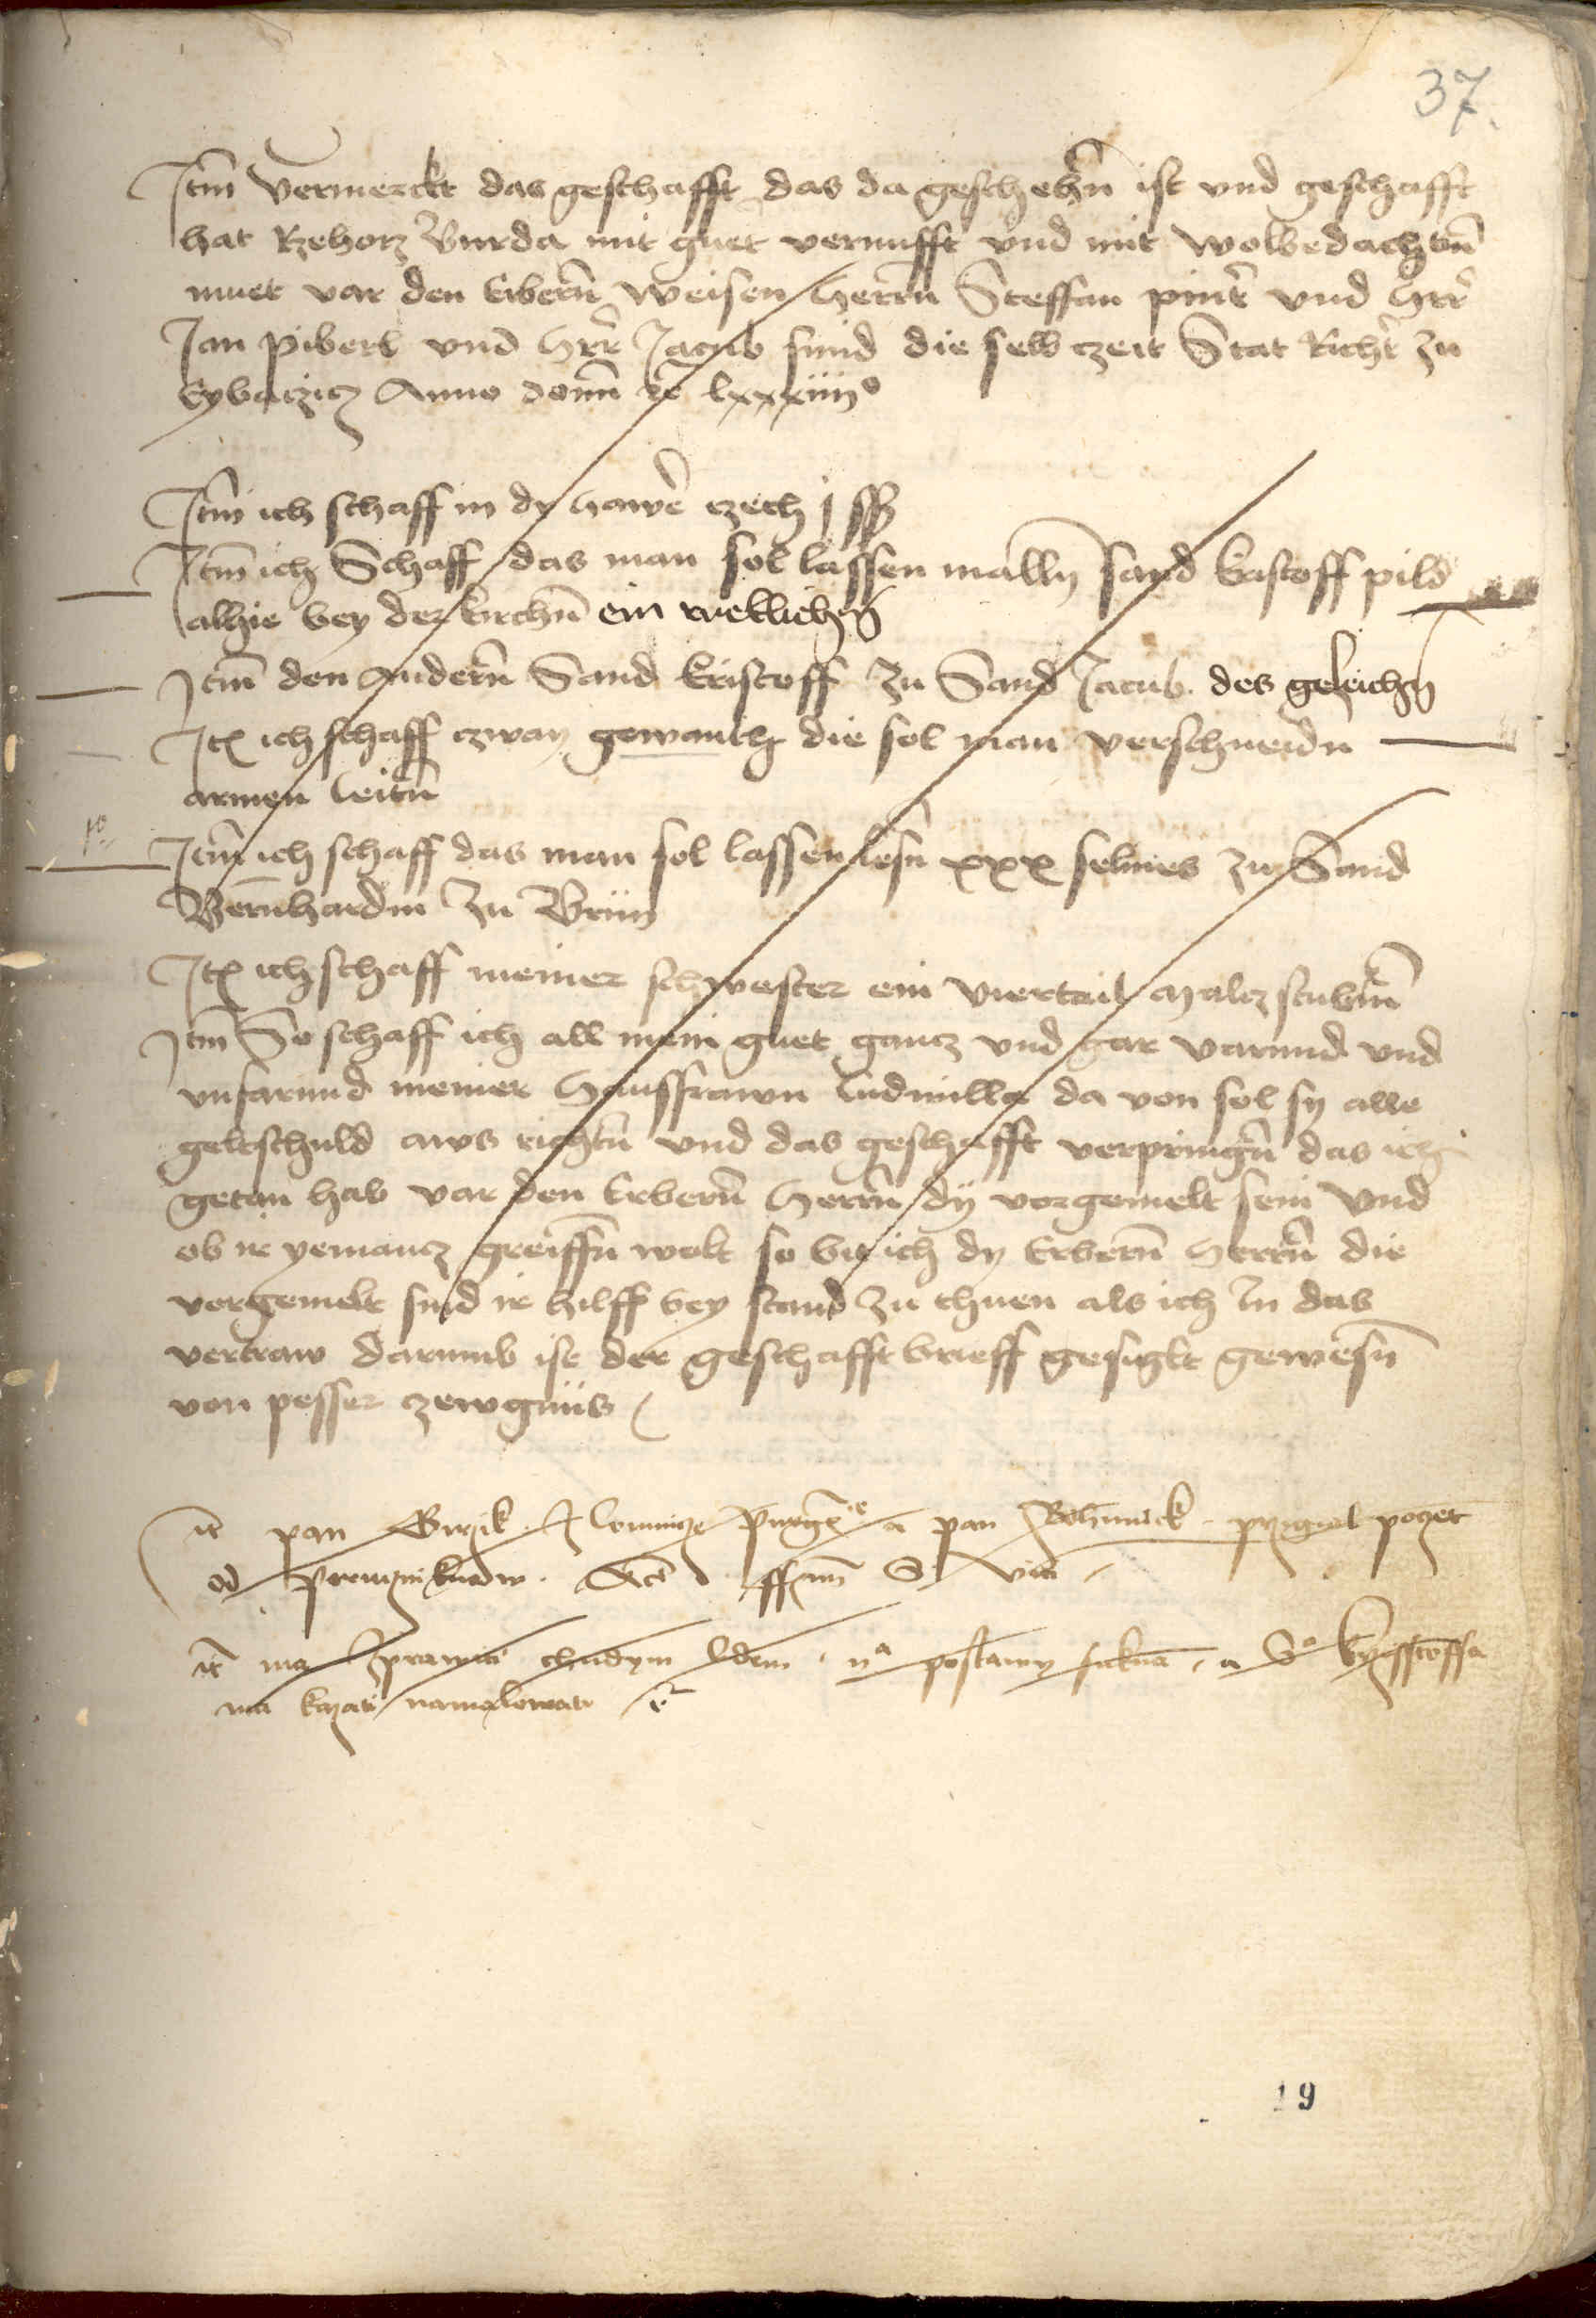 37.
Itm̄ Vermerckt das geschafft das da geschehn̄ ist vnd geschafft
hat Rzehorz Burda mit guet vernufft vnd mit wolbedachtn̄
muet var den Erbern̄ Weisen Herrn̄ Steffan pintr̄ vnd Hrr̄
Jan piberl vnd Hrr̄ Jacub sind die selb czeit Stat Richtr̄ zu
Eybaczicz Anno domī rc̄ lxxxiiij°
Itm̄ ich schaff in dy Hawr̄ czech j ss
Itm̄ ich Schaff das man sol lassen malln̄ sand Cristoff pild
alhie bey der kirchn̄ ein
Itm̄ den Andern̄ Sand Cristoff zu Sand Jacub des geleichn̄
Itē ich schaff czway gewanth die sol man verschneidn̄
armen Leitn̄
Itm̄ ich schaff das man sol lassen lesn̄ xxx selmes zu Sand
Bernhardin zu Brun̄
Itē ich schaff meiner schwester ein viertail
Itm̄ So schaff ich all mein guet gancz vnd gar varund vnd
vnfarund meiner Hausfrawn Ludmilla da von sol sy alle
geltschuld aws richtn̄ vnd das geschafft verpringn̄ das ich
getan hab var den Erbern̄ Herrn̄ dy vorgemelt sein Vnd
ob ir yemancz greiffn̄ wolt so bit ich dy Erbern̄ Herrn̄ die
vorgemelt sind ir hilff bey stand zu thuen als ich In das
vertraw darumb ist der geschafft brieff gesiglt gewesn̄
von pesser czewgnus
it pan a pan przigal poczet
od
it ma zprawiti chudym lidem ij postawy sukna a S° krzisstoffa
ma kazati namalowati rc̄
19